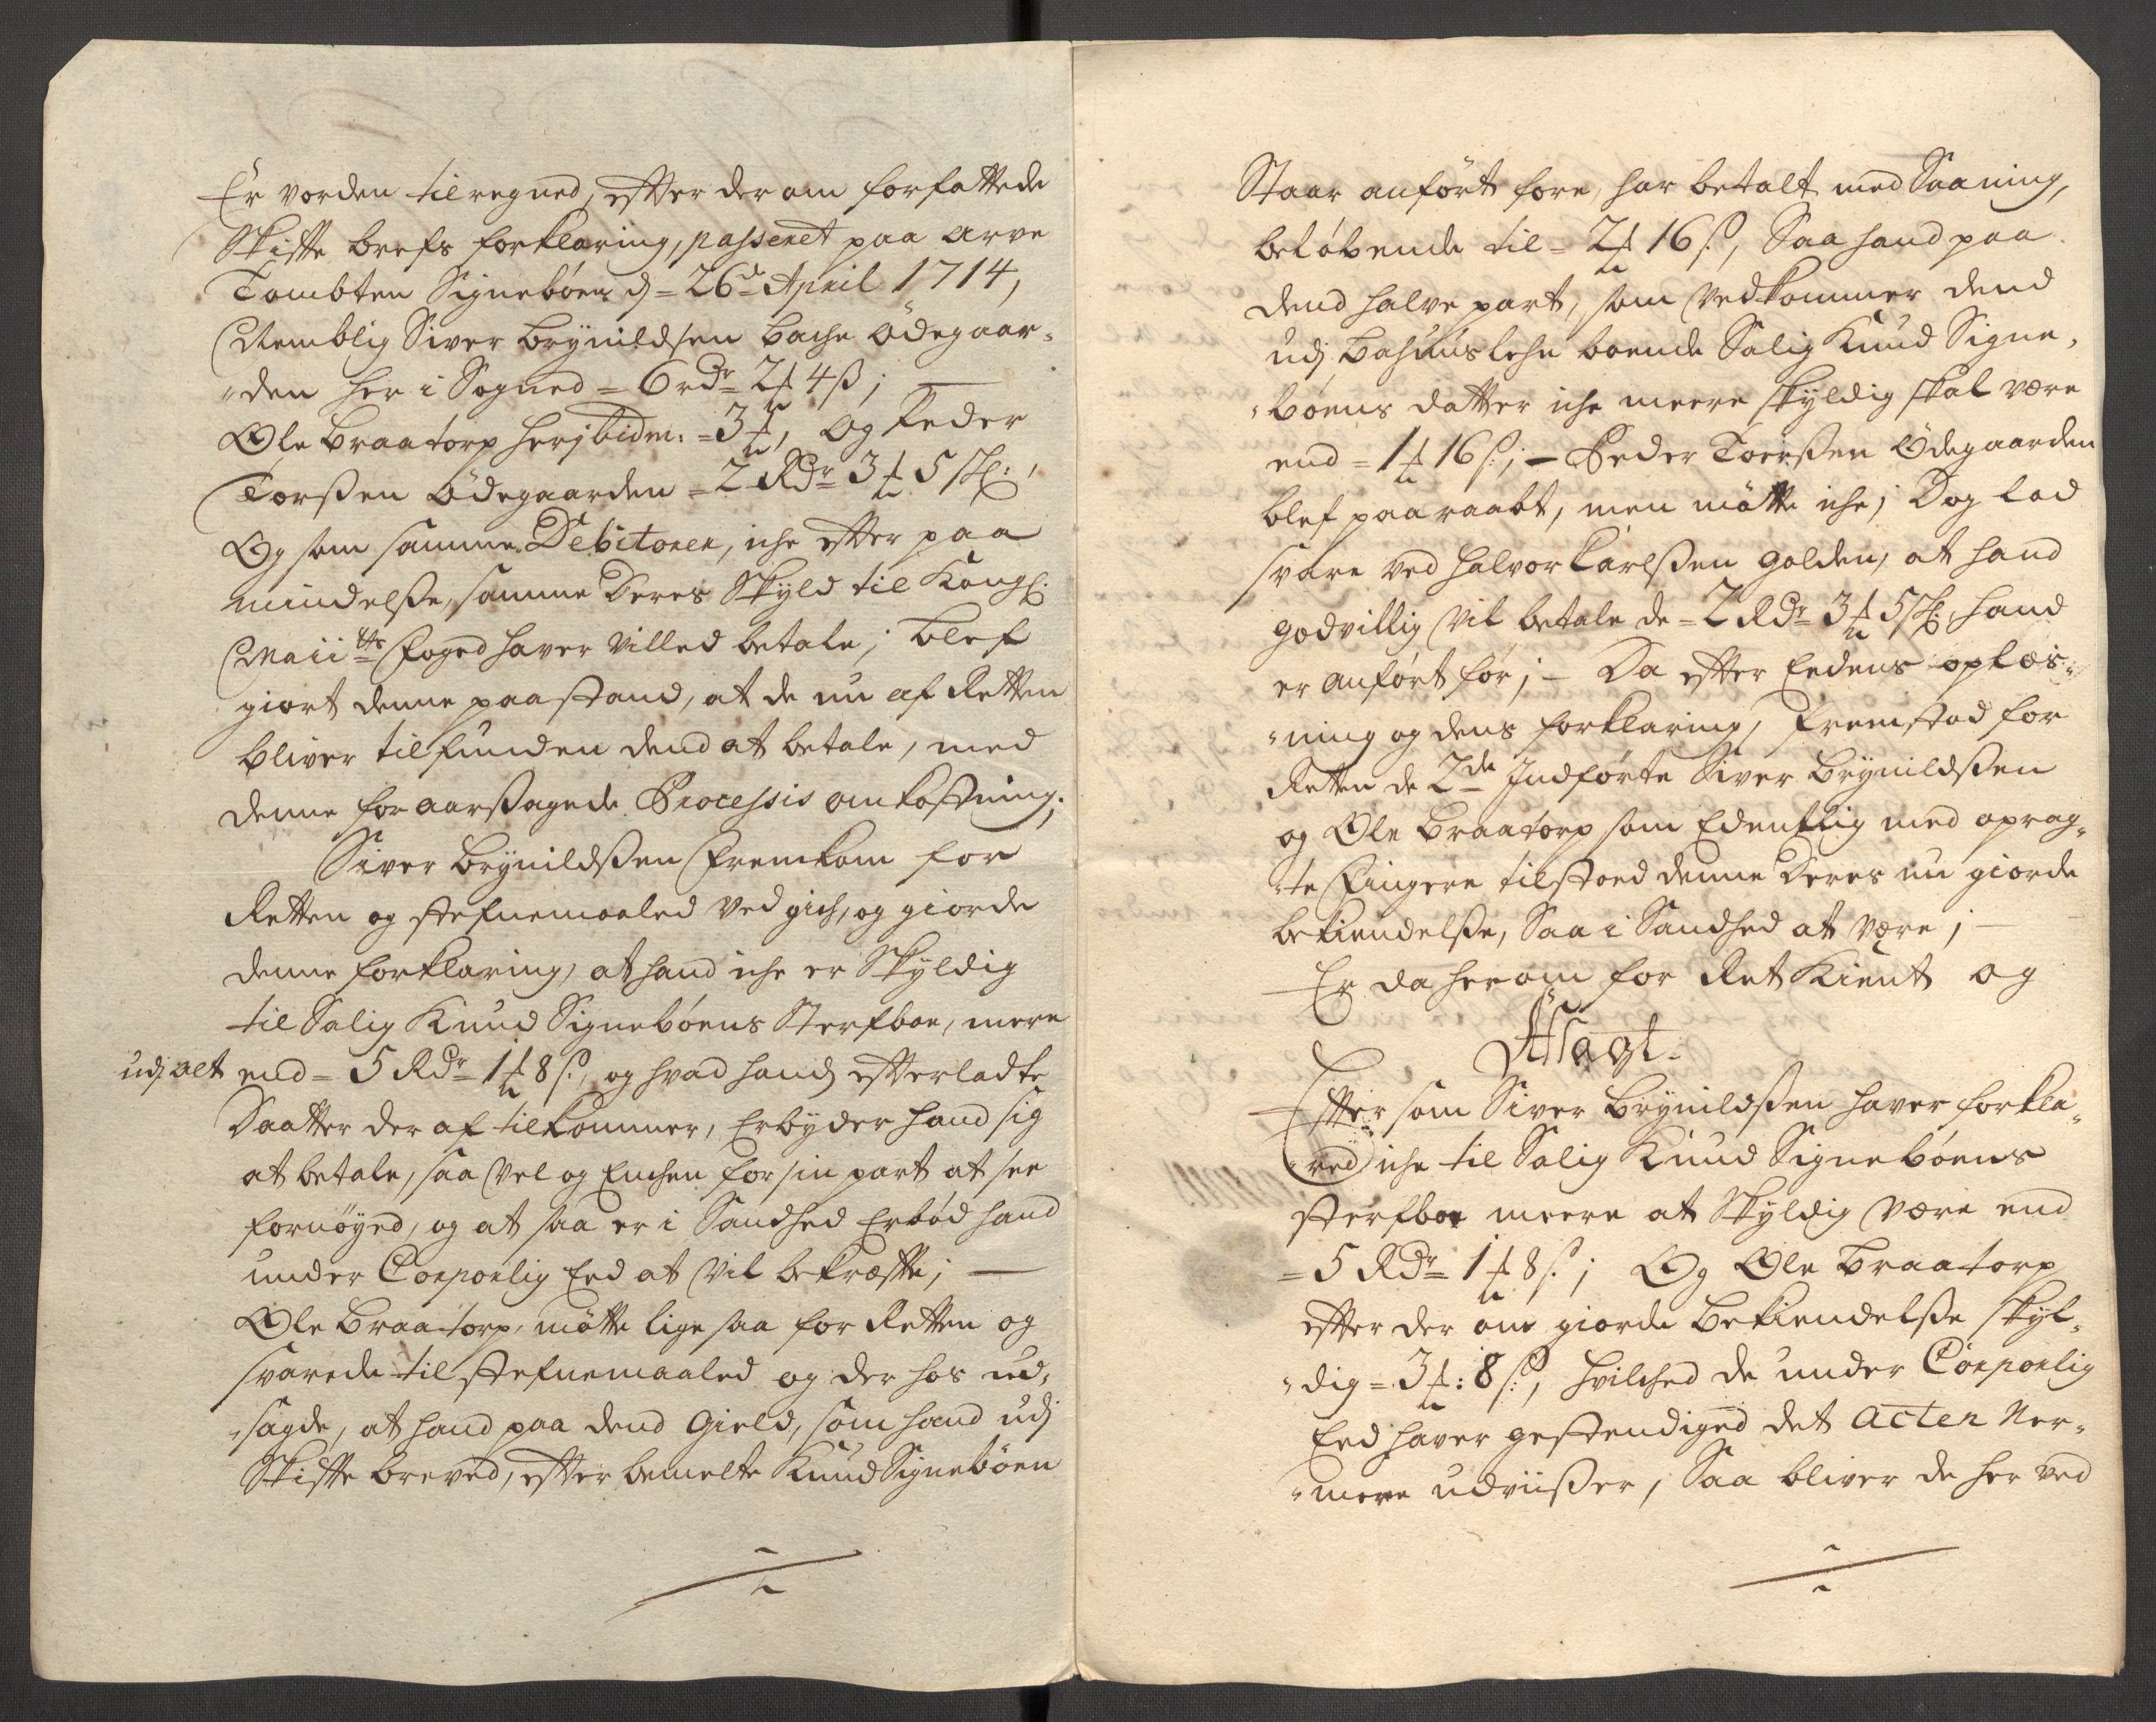 Er vorden tilregned, efter der om forfattede
Skifte brefs forklaring, passeret paa arve
Tombten Signebøen d = 26de April 1714,
Nemblig Siver Brynildsen Bache Ödegaar-
den her i Sogned = 6 rdr 2 ƒ 4 ß;
Ole Braatorp her ibidm: = 3 ƒ, og Peder
Torßen Ödegaarden = 2 Rdr 3 ƒ 5 sk:,
Og som samme Debitorer, iche efter paa
mindelse, samme Deres Skyld til Kongl:
Maiitts Foged haver villed betale; blef
giort denne paastand, at de nu af Retten
bliver tilfunden dend at betale, med
denne foraarßagede Processis omkostning;
Siver Brynildßen Fremkom for
Retten og Stefnemaaled ved gich, og giorde
denne forklaring, at hand iche er Skyldig
til Salig Knud Signebøens Sterfboe, mere
udj alt end = 5 Rdr 1 ƒ 8 s:, og hvad hands efterladte
Daatter der af tilkommer, Erbyder hand sig
at betale, saa vel og Enchen for sin part at see
fornöyed, og at saa er i Sandhed Erbød hand
under Corporlig Eed at vil bekræfte;
Ole Braatorp, mötte lige saa for Retten og
svarede til Stefnemaaled og der hos ud-
sagde, at hand paa dend Gield, som hand udj
Skifte breved, efter bemelte Knud Signebøen
Staar anført fore, har betalt med Saaning,
beløbende til = 2 ƒ 16 s:, Saa hand paa
dend halve part, som vedkommer dend
udj Bahuuslehn boende Salig Knud Signe-
bøens datter iche meere skyldig skal være
end = 1 ƒ 16 s:; - Peder Toerßen Ödegaarden
blef paaraabt, men mötte iche; Dog lod
svare ved Halvor Carlßen Golden, at hand
godvillig vil betale de = 2 Rdr 3 ƒ 5 sk: hand
er anført for; - Da efter Eedens oplæs-
ning og dens forklaring, Fremstod for
Retten de 2de Indførte Siver Brynildßen
og Ole Braatorp som Edentlig med oprag-
te Fingere tilstoed denne Deres nu giorde
bekiendelße, Saa i Sandhed at være;
Er da her om for Ret Kient og
Afsagt.
Efter som Siver Brynildßen haver forkla-
red iche til Salig Knud Signebøens
Sterfboe meere at Skyldig være end
= 5 Rdr 1 ƒ 8 s:; Og Ole Braatorp
efter der om giorde Bekiendelße skyl-
dig = 3 ƒ: 8 s:, hvilched de under Corporlig
Eed haver gestendiged det acten ner-
mere udviißer, Saa bliver de her ved